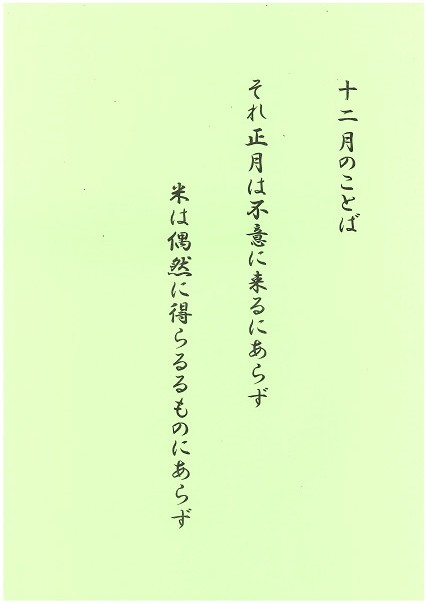 十二月のことば
それ正月は不意に来るにあらず
米は偶然に得らるるものにあらず